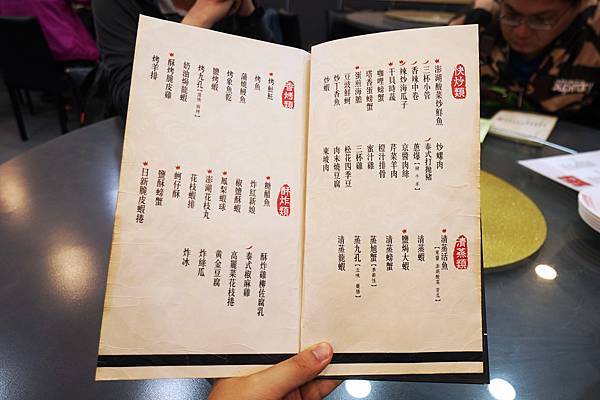 快炒類
澎湖酸菜炒鮮魚
三杯小管
香辣中卷
辣炒海瓜子
干貝時蔬
咖哩螃蟹
塔香蛋螃蟹
蛋煎海膽
豆豉鮮蚵
炒丁香魚
炒蝦
炒螺肉
泰式打拋豬
蔥爆
京醬肉絲
芹菜羊肉
橙汁排骨
蜜汁雞
三杯雞
松花四季豆
肉末燒豆腐
東坡肉
清蒸類
清蒸活魚
清蒸蝦
鹽焗大蝦
清蒸螃蟹
蒸旭蟹【季節性】
蒸九孔【五味 蒜蓉】
清蒸龍蝦
香烤類
烤魟魠
烤魚
蒲燒鰻魚
烤象魚乾
鹽烤蝦
烤九孔
奶油焗龍蝦
酥烤脆皮雞
烤羊排
酥炸類
糖醋魚
炸紅新娘
椒鹽酥蝦
鳳梨蝦球
澎湖花枝丸
花枝蝦排
蚵仔酥
鹽酥螃蟹
日新脆皮蝦捲
酥炸雞柳佐腐乳
泰式椒麻雞
高麗菜花枝捲
黃金豆腐
炸絲瓜
炸冰